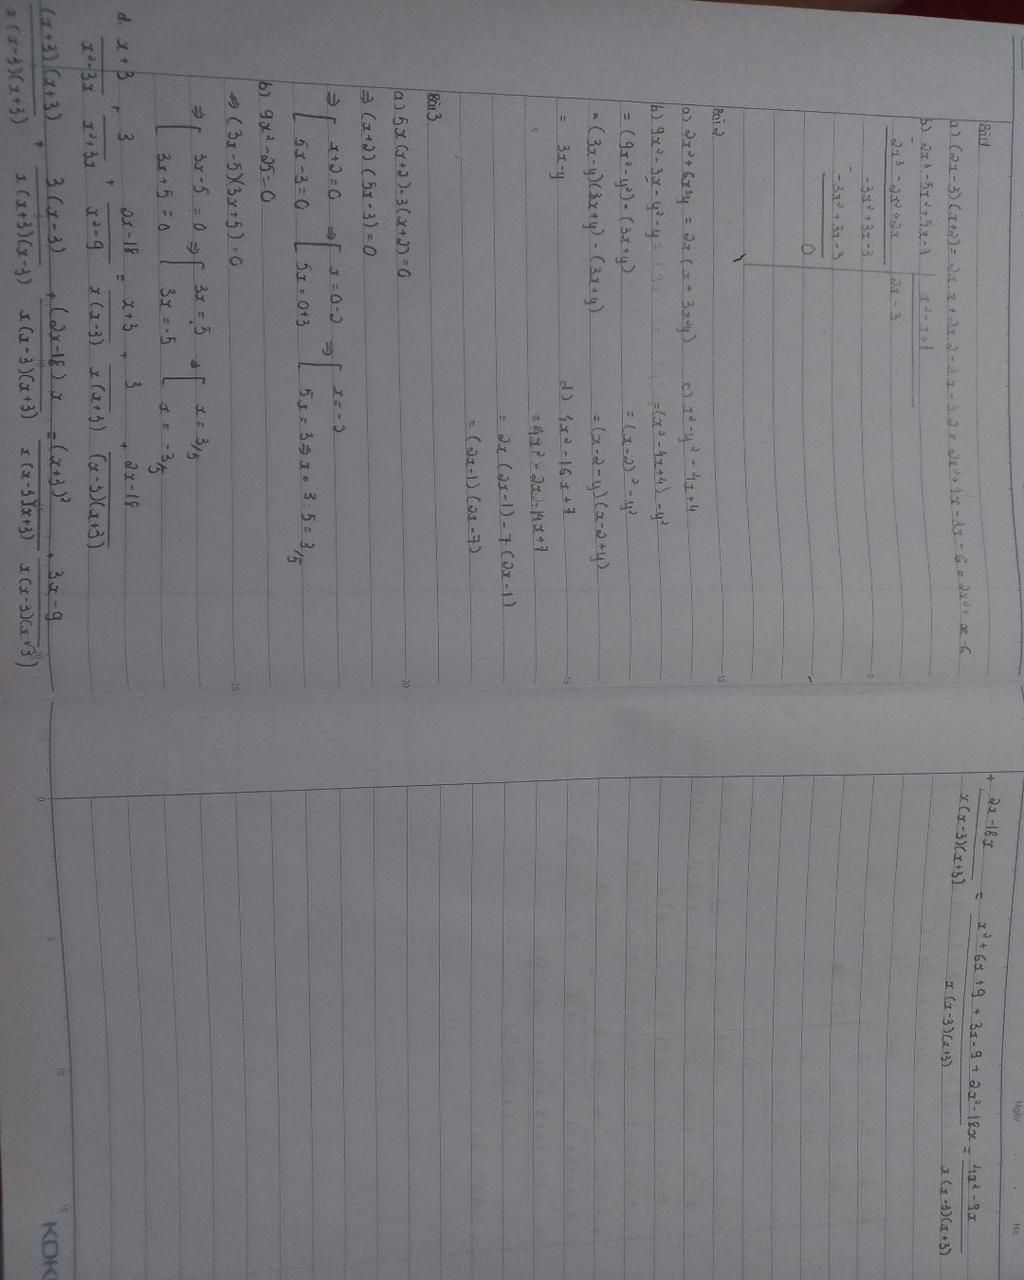 Bài 1
a) (2x-3)(x+2) = 2x.x+2x.2-3.x-3.2 = 2x²+4x-3x-6 = 2x²+x-6
b) 2x³-5x²+5x-3 | x²-x+1
2x³-2x²+2x | 2x-3
-3x²+3x-3
-3x²+3x-3
0
Bài 2
a) 2x²+6x²y = 2x(x+3xy)
b) 9x²-3x-y²-y
= (9x²-y²)-(3x+y)
= (3x-y)(3x+y)-(3x+y)
= 3x-y
c) x²-y²-4x+4
= (x²-4x+4)-y²
= (x-2)²-y²
= (x-2-y)(x-2+y)
d) 4x²-16x+7
= 4x²-2x-14x+7
= 2x(2x-1)-7(2x-1)
= (2x-1)(2x-7)
Bài 3
a) 5x(x+2)-3(x+2)=0
⇒ (x+2)(5x-3)=0
⇒ [ x+2=0 ⇒ [ x=0-2 ⇒ [ x=-2
[ 5x-3=0 [ 5x=0+3 [ 5x=3 ⇒ x=3:5=3/5
b) 9x²-25=0
⇒ (3x-5)(3x+5)=0
⇒ [ 3x-5=0 ⇒ [ 3x=5 ⇒ [ x=3/5
[ 3x+5=0 [ 3x=-5 [ x=-3/5
d. x+3 + 3 + 2x-18 = x+3 + 3 + 2x-18
x²-3x x²+3x x²-9 x(x-3) x(x+3) (x-3)(x+3)
(x+3)(x+3) + 3(x-3) + (2x-18).x = (x+3)² + 3x-9
x(x-3)(x+3) x(x+3)(x-3) x(x-3)(x+3) x(x-3)(x+3) x(x-3)(x+3)
Ngày . . No.
+ 2x-18x = x²+6x+9+3x-9+2x²-18x = 4x²-9x
x(x-3)(x+3) x(x-3)(x+3) x(x-3)(x+3)